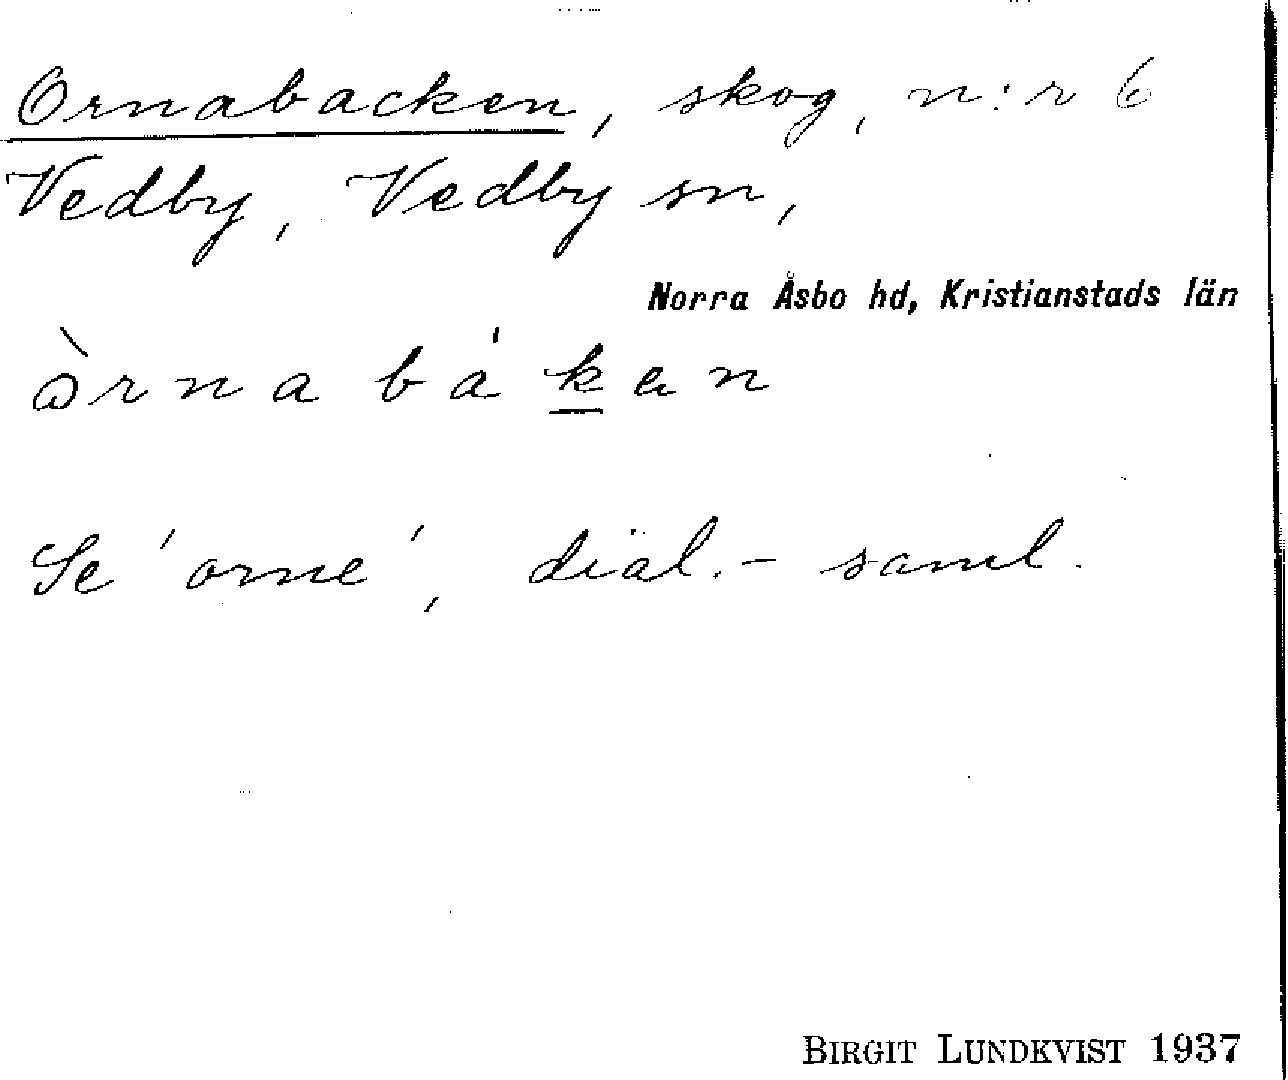 Ornabacken, skog, n:r 6
Vedby, Vedby sn,
Norra Åsbo hd, Kristianstads län
òrna bákan
Se 'orne', dial.-saml.
BIRGIT LUNDKVIST 1937